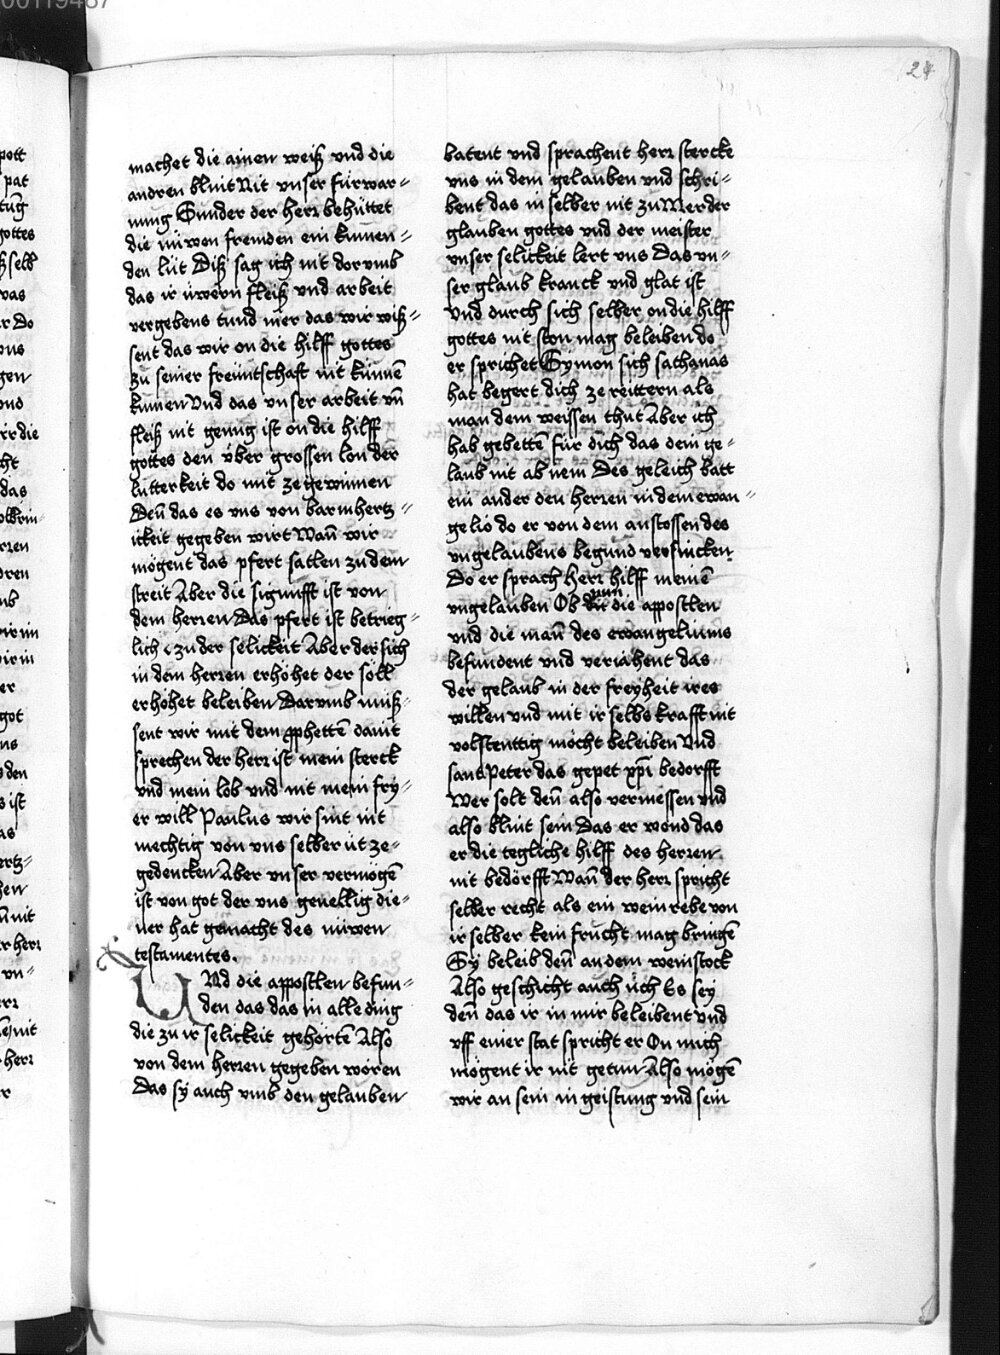 00119487
24
machet die ainen weiß vnd die
andren blint Nit vnser fürwar=
nung Sunder der herr behüttet
die nüwen fremden ein kumen=
den lüt Diß sag ich nit dorvmb
das ir üwern fleiß vnd arbeit
vergebens tund mer das wir wiß=
sent das wir on die hilff gottes
zu seiner freüntschafft nit künne͂
kumen Vnd das vnser arbeit vn͂
fleiß nit genüg ist on die hilff
gottes den über grossen lon der
lutterkeit do mit ze gewinnen
Den͂ das es vns von barmhertz=
ickeit gegeben wirt Wan͂ wir
mögent das pfert satlen zu dem
streit Aber die signufft ist von
dem herren Das pfert ist betrieg=
lich zu der selickeit Aber der sich
in dem herren erhöhet der söll
erhöhet beleiben Darvmb müß=
sent wir mit dem pphette͂ dauit
sprechen der herr ist mein sterck
vnd mein lob vnd nit mein fry=
er will Paulus wir sint nit
mechtig von vns selber üt ze=
gedencken Aber vnser vermöge͂
ist von got der vns geuellig die=
ner hat gemacht des nüwen
testamentes.
VNd die appostlen befun=
den das das in alle ding
die zu ir selickeit gehörte͂ Also
von dem herren gegeben woren
Das sy auch vmb den gelauben
batent vnd sprachent herr stercke
vns in dem gelauben vnd schri=
bent das in selber nit zu Wer der
glauben gottes vnd der meister
vnser selickeit lert vns Das vn=
ser glaub kranck vnd glat ist
Vnd durch sich selber on die hilff
gottes nit ston mag beleiben do
er sprichet Symon sich sathanas
hat begert dich ze reittern als
man dem weissen thut Aber ich
hab gebette͂ für dich das dein ge=
laub nit ab nem Des geleich batt
ein ander den herren in dem ewan=
gelio do er von dem anstossen des
vngelaubens begund versincken
Do er sprach herr hilff meine͂
vngelauben Ob nun die appostlen
vnd die man͂ des ewangeliums
befundent vnd veriahent das
der gelaub in der freyheit ires
willen vnd mit ir selbs krafft nit
volstenttig möcht beleiben Vnd
sant Peter das gepet xp͂i bedorfft
Wer solt den͂ also vermessen vnd
also blint sein Das er wond das
er die tegliche hilff des herren
nit bedörfft Wan͂ der herr spricht
selber recht als ein wein rebe von
ir selber kein frucht mag bringe͂
Sy beleib den͂ an dem weinstock
Also geschicht auch üch Es sey
den͂ das ir in mir beleibent vnd
vff einer stat spricht er On mich
mögent ir nit getun Also möge͂
wir an sein in geistung vnd sein